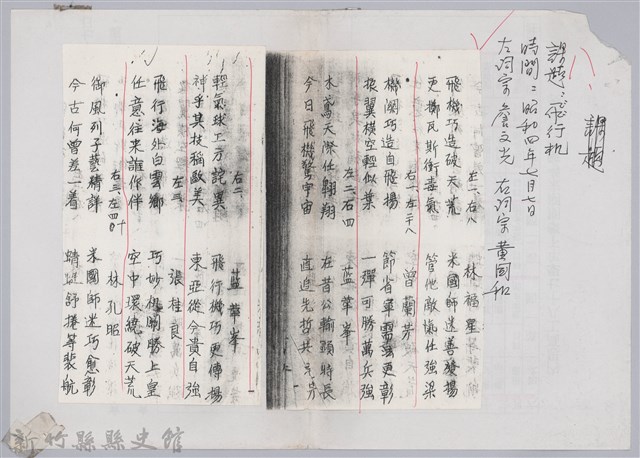 課題:飛行机
時間:昭和四年七月七日
左詞宗 詹文光 右詞宗 黃國和
右八 左八 林福星
飛機巧造破天荒 米國師送善發揚
更擲瓦斯衝毒氣 管他敵愾任強梁
右一、左二十八 曾蘭芳
機關巧造自飛揚 節省軍需更彰
翼橫空輕似葉 一彈可勝萬兵強
左二、右四 藍華峯
木鳶天際任翱翔 在昔公輸顯特長
今日飛機驚宇宙 直追先哲共
右二、 藍華峯
輕氣球工方詫異 飛行機巧更傳揚
神乎其技稱歐美 東亞從今貴自強
左三 張桂良
飛行海外白雲鄉 巧妙机關勝上皇
任意往來誰作伴 空中環繞破天荒
右三、左四十 林孔昭
御風列子藝精詳 米國師迷巧愈彰
今古何曾差一着 蜻蜓舒捲等裴航
新竹縣縣史館